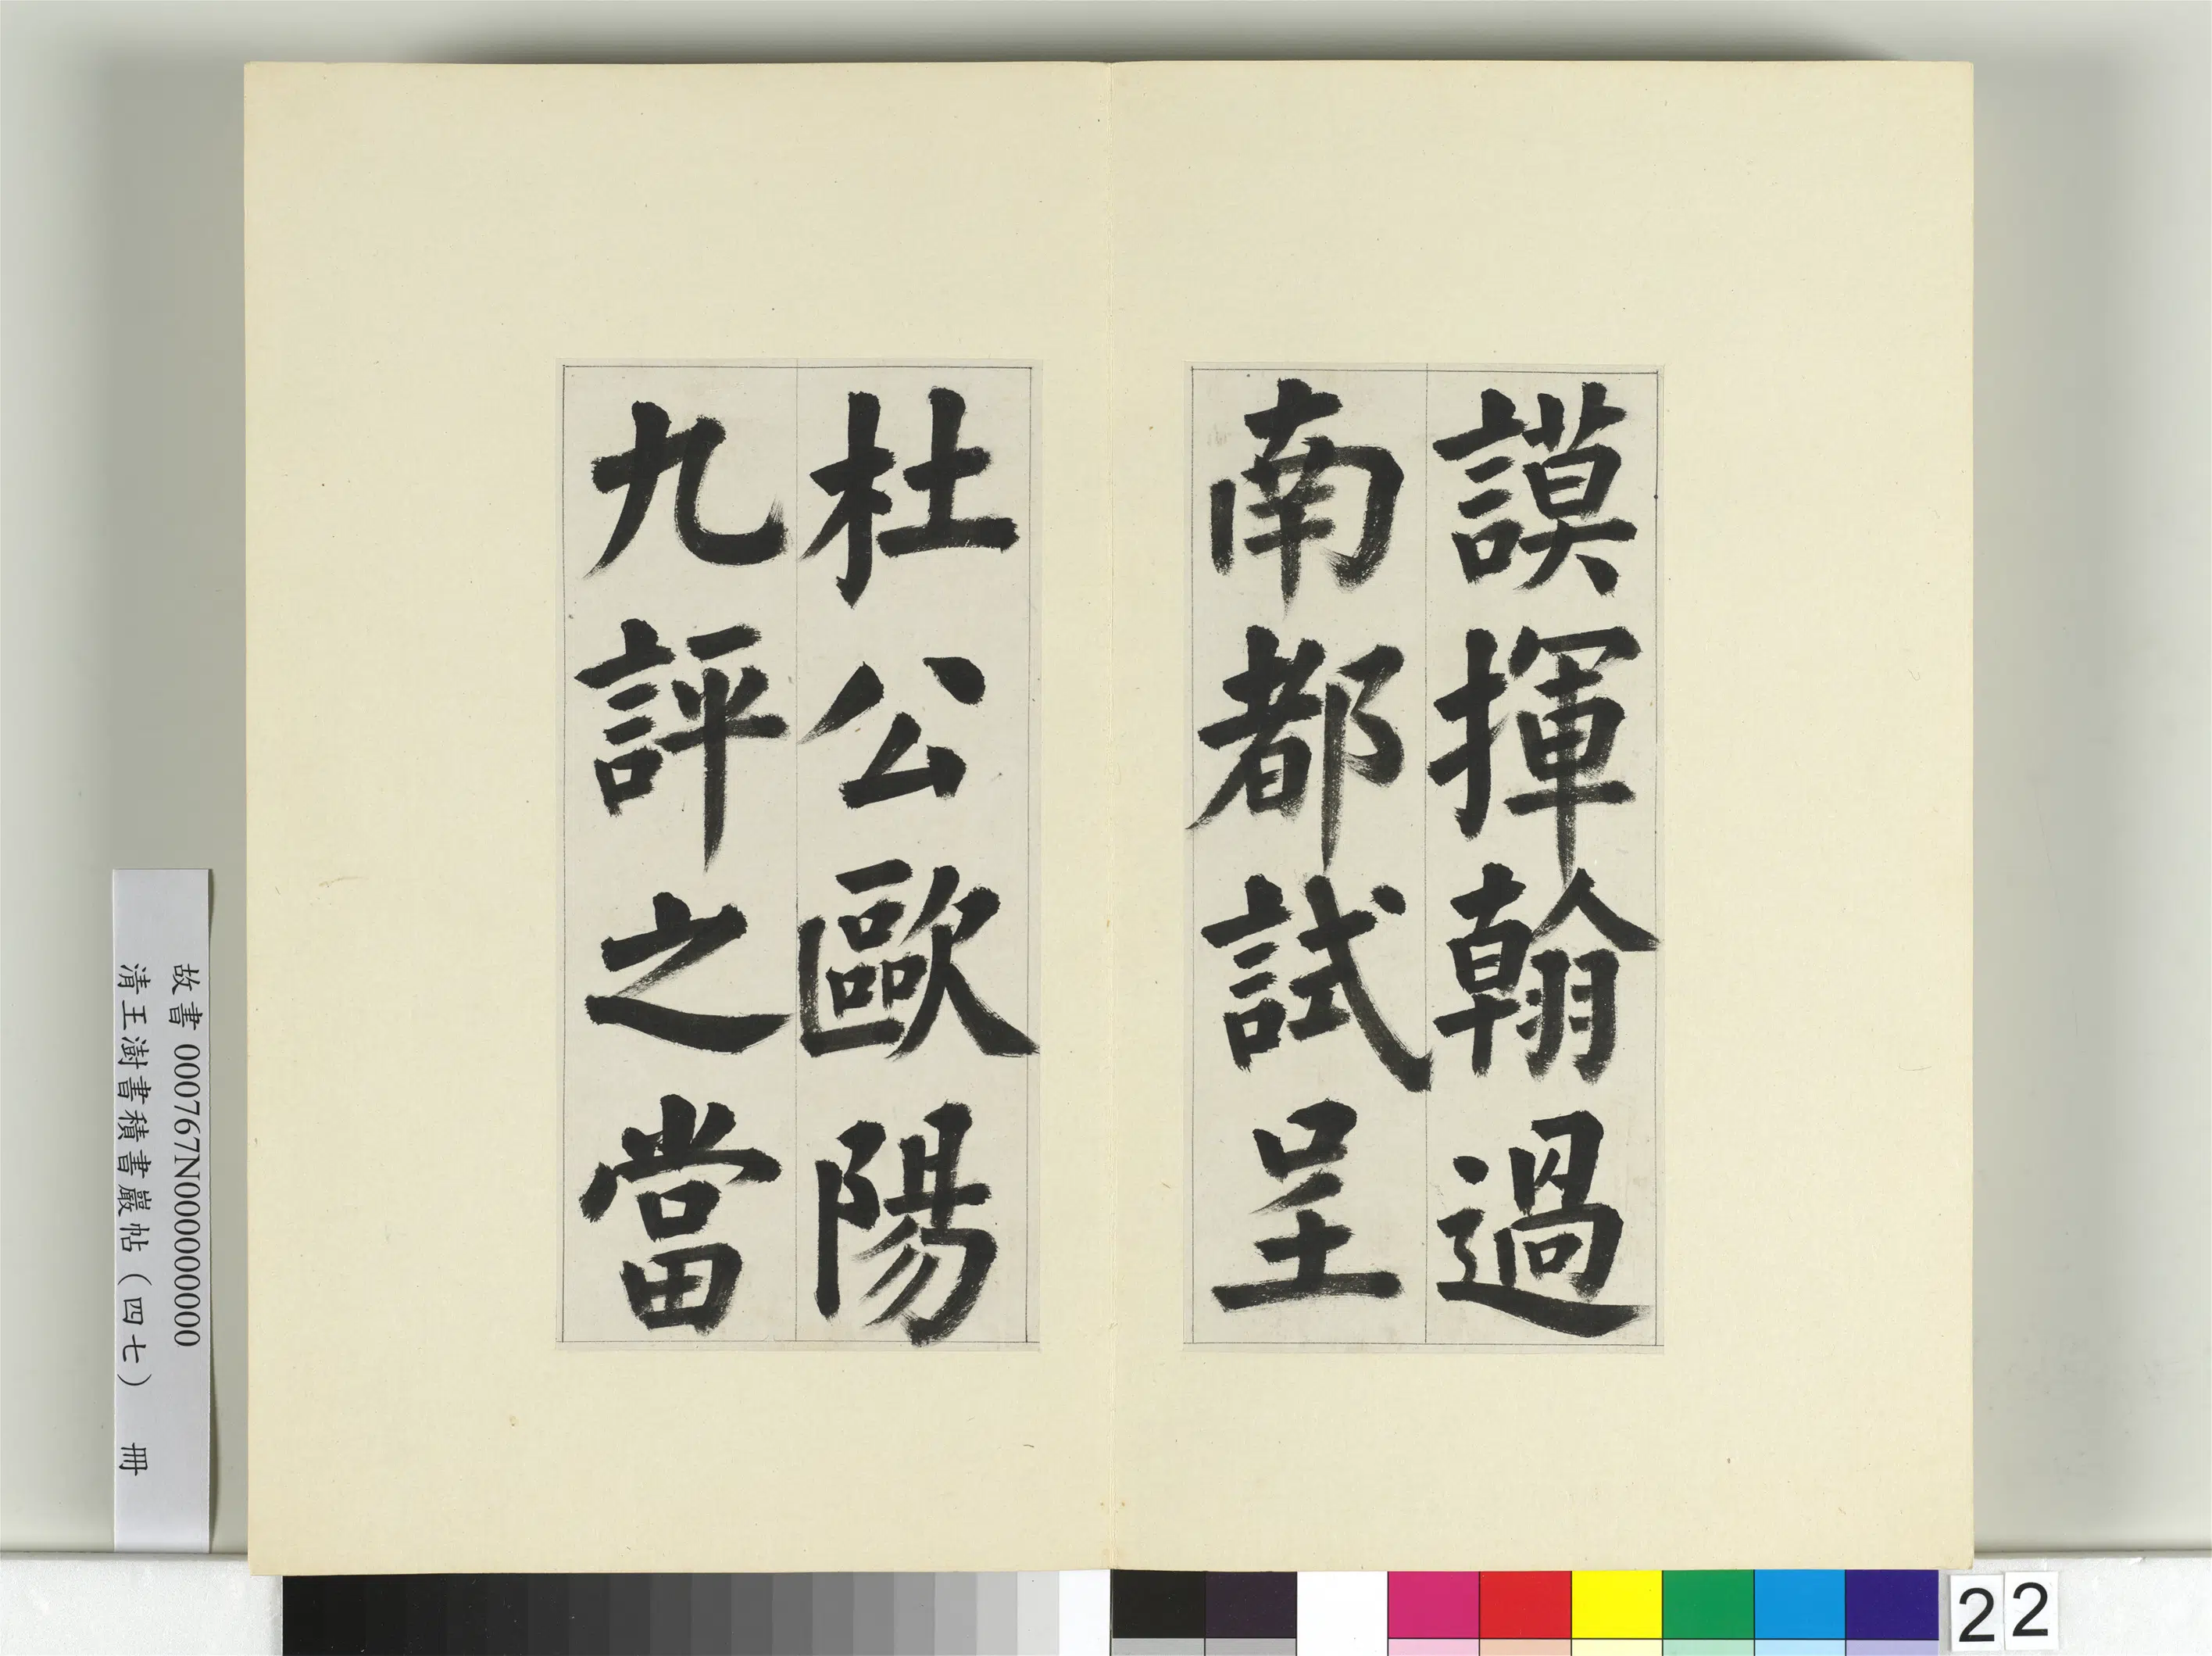 謨揮翰過
南都試呈
杜公歐陽
九評之當
故書 000767N000000000
清王澍書積書巖帖（四七） 冊
22